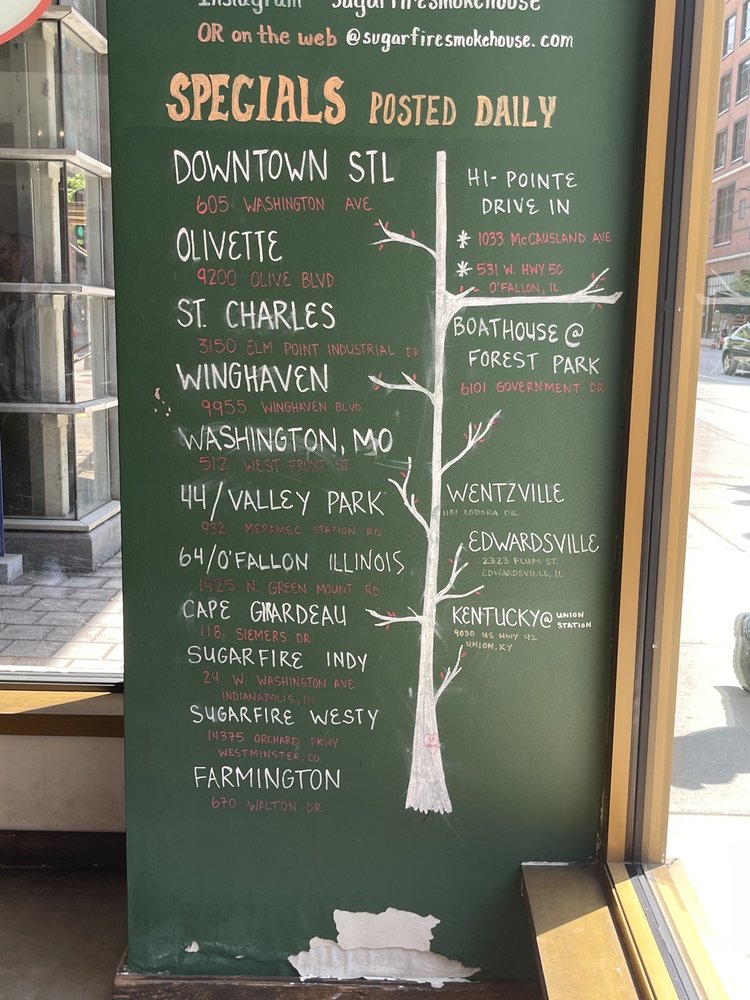 Instagram Sugarfiresmokehouse
OR on the web @sugarfiresmokehouse.com
SPECIALS POSTED DAILY
DOWNTOWN STL
605 WASHINGTON AVE.
OLIVETTE
9200 OLIVE BLVD
ST. CHARLES
3150 ELM POINT INDUSTRIAL DR
WINGHAVEN
9955 WINGHAVEN BLVD
WASHINGTON, MO
512 WEST FRONT ST
44/VALLEY PARK
932 MERAMEC STATION RD
64/O'FALLON ILLINOIS
1425 N. GREEN MOUNT RD
CAPE GIRARDEAU
118 SIEMERS DR
SUGARFIRE INDY
24 W. WASHINGTON AVE
INDIANAPOLIS, IN
SUGARFIRE WESTY
14375 ORCHARD PKWY
WESTMINSTER, CO
FARMINGTON
670 WALTON DR
HI-POINTE
DRIVE IN
* 1033 McCAUSLAND AVE
* 531 W. HWY 50
O'FALLON, IL
BOATHOUSE @
FOREST PARK
6101 GOVERNMENT DR.
WENTZVILLE
1101 LODORA DR.
EDWARDSVILLE
2323 PLUM ST.
EDWARDSVILLE, IL
KENTUCKY @ UNION
STATION
9030 US HWY 42
UNION, KY